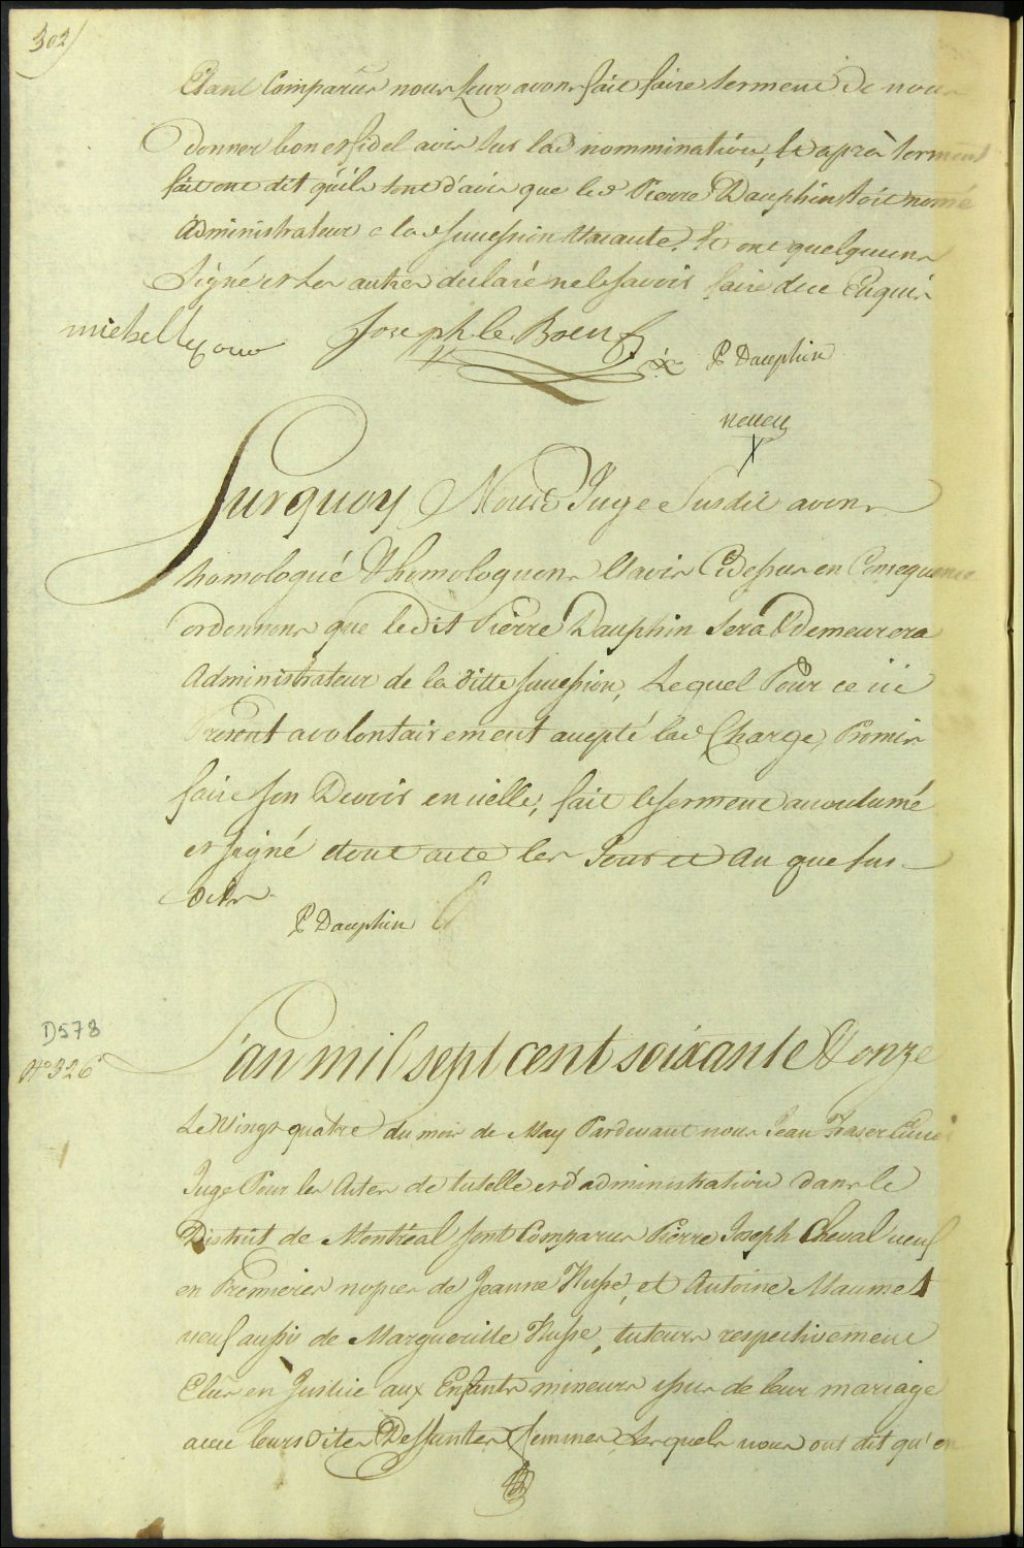 302
Etant Comparus nous leur avons fait faire serment de nous
donner bon et fidel avis sur lad nommination, et après serment
fait ont dit qu'ils sont d'avis que led Pierre Dauphin soit nomé
Administrateur a lad succession Vacante. Et ont quelqu'uns
Signé et les autres declaré ne le savoir faire de ce Enquis
Joseph le Boeuf
P Dauphin
neveu
Surquoy Nous Juge Susdit avons
homologué & homologuons l'avis Cidessus en Consequence
ordonnons que ledit Pierre Dauphin Sera & demeurera
Administrateur de la ditte succession, Lequel Pour ce ici
Present a volontairement accepté lad Charge, Promis
faire son Devoir en icelle, fait le serment accoutumé
et signé dont acte les Jour et An que sus
dits
P Dauphin
D578
N° 326
L'an mil sept cent soixante & onze
Le Vingt quatre du mois de May Pardevant nous Jean Fraser Ecuier
Juge Pour les Actes de tutelle et d'administration dans le
District de Montréal sont Comparus Pierre Joseph Cheval veuf
en Premieres nopces de Jeanne Husse, et Antoine Maumet
veuf aussis de Margueritte Husse, tuteurs respectivement
Elus en Justice aux Enfants mineurs issus de leur mariage
avec leurs dites Deffuntes femmes Lesquels nous ont dit qu'en